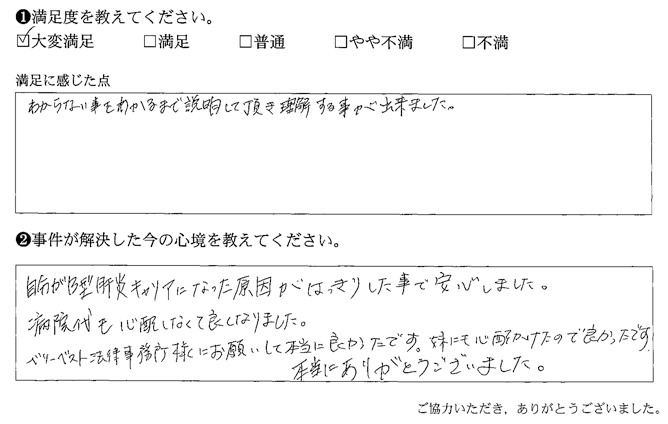 ❶満足度を教えてください。
☑大変満足 □満足 □普通 □やや不満 □不満
満足に感じた点
わからない事をわかるまで説明して頂き理解する事が出来ました。
❷事件が解決した今の心境を教えてください。
自分がB型肝炎キャリアになった原因がはっきりした事で安心しました。
病院代も心配しなくて良くなりました。
ベリーベスト法律事務所様にお願いして本当に良かったです。妹にも心配かけたので良かったです
本当にありがとうございました。
ご協力いただき，ありがとうございました。